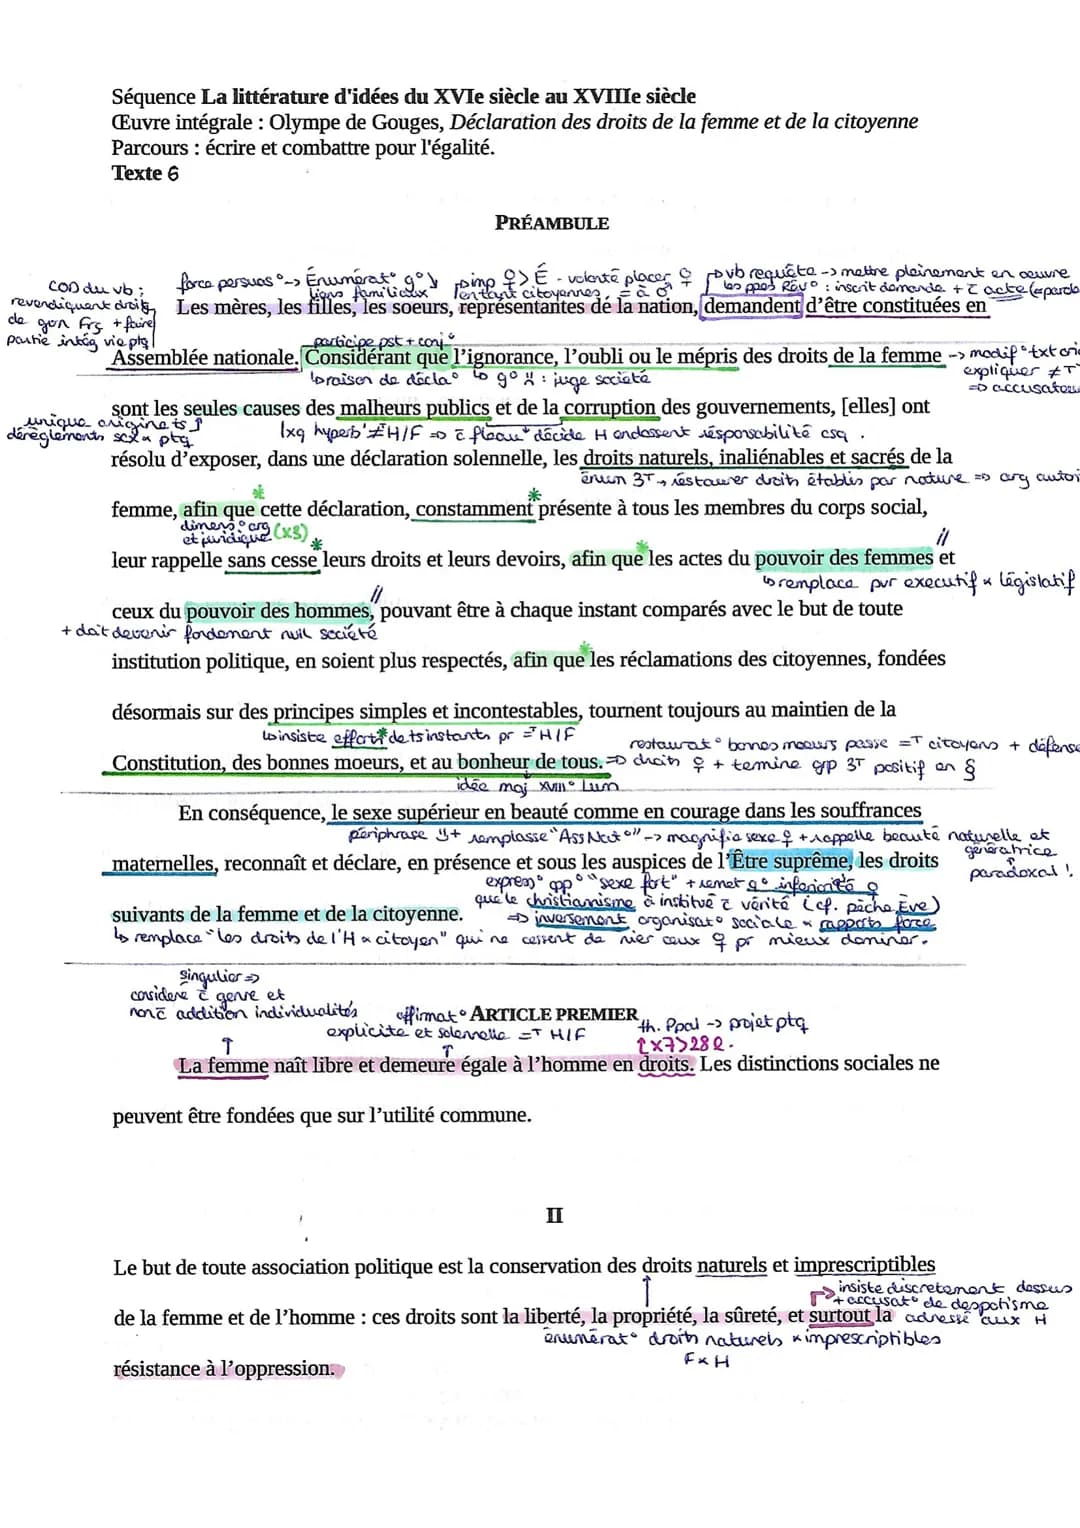 Séquence La littérature d'idées du XVIe siècle au XVIIIe siècle
Œuvre intégrale : Olympe de Gouges, Déclaration des droits de la femme et de la citoyenne
Parcours : écrire et combattre pour l'égalité.
Texte 6
PRÉAMBULE
COD du vb :
revendiquent droits
de gvn Frs + faire
partie intég vie ptq
force persuas° -> Énumérat° g°
liens familiaux
imp ♀ > É - volonté placer ♀
en tant citoyennes, = à ♂
vb requête -> mettre pleinement en œuvre
les ppes Révo : inscrit demande + c̄ acte (= parole
Les mères, les filles, les soeurs, représentantes de la nation, demandent d'être constituées en
participe pst + conj°
Assemblée nationale. Considérant que l'ignorance, l'oubli ou le mépris des droits de la femme -> modif° txt ori
↳ raison de décla° ↳ g° : juge société
expliquer ≠T
=> accusateu
sont les seules causes des malheurs publics et de la corruption des gouvernements, [elles] ont
unique origine ts
dérèglements scx ptq
lxq hyperb' ≠ H/F => c̄ fléau décide H endossent résponsabilité csq.
résolu d'exposer, dans une déclaration solennelle, les droits naturels, inaliénables et sacrés de la
énum 3T -> réstaurer droits établis par nature => arg autori
femme, afin que cette déclaration, constamment présente à tous les membres du corps social,
dimens° arg
et juridique (x3)
leur rappelle sans cesse leurs droits et leurs devoirs, afin que les actes du pouvoir des femmes et
↳ remplace pvr executif × législatif
ceux du pouvoir des hommes, pouvant être à chaque instant comparés avec le but de toute
+ doit devenir fondement nvll société
institution politique, en soient plus respectés, afin que les réclamations des citoyennes, fondées
désormais sur des principes simples et incontestables, tournent toujours au maintien de la
↳ insiste effort de ts instants pr =T H/F
restaurat° bonnes moeurs passe =T citoyens + défense
Constitution, des bonnes moeurs, et au bonheur de tous. => droits ♀ + termine grp 3T positif en §
idée maj XVIII° Lum
En conséquence, le sexe supérieur en beauté comme en courage dans les souffrances
périphrase + remplasse "Ass Nat°" -> magnifie sexe ♀ + rappelle beauté naturelle et
génératrice
paradoxal !
maternelles, reconnaît et déclare, en présence et sous les auspices de l'Être suprême, les droits
express° opp° "sexe fort" + remet q° infériorité ♀
que le christianisme a institué c̄ vérité (cf. pêche Eve)
suivants de la femme et de la citoyenne. => inversement organisat° sociale × rapports force
↳ remplace "les droits de l'H × citoyen" qui ne cessent de nier ceux ♀ pr mieux dominer.
singulier =>
considère c̄ genre et
non c̄ addition individualités
affirmat°
explicite et solennelle =T H/F
ARTICLE PREMIER
th. Ppal -> projet ptq
↑ x7 > 28 l.
La femme naît libre et demeure égale à l'homme en droits. Les distinctions sociales ne
peuvent être fondées que sur l'utilité commune.
II
Le but de toute association politique est la conservation des droits naturels et imprescriptibles
insiste discretement dessus
+ accusat° de despotisme
de la femme et de l'homme : ces droits sont la liberté, la propriété, la sûreté, et surtout la adressé aux H
énumérat° droits naturels × imprescriptibles
F × H
résistance à l'oppression.